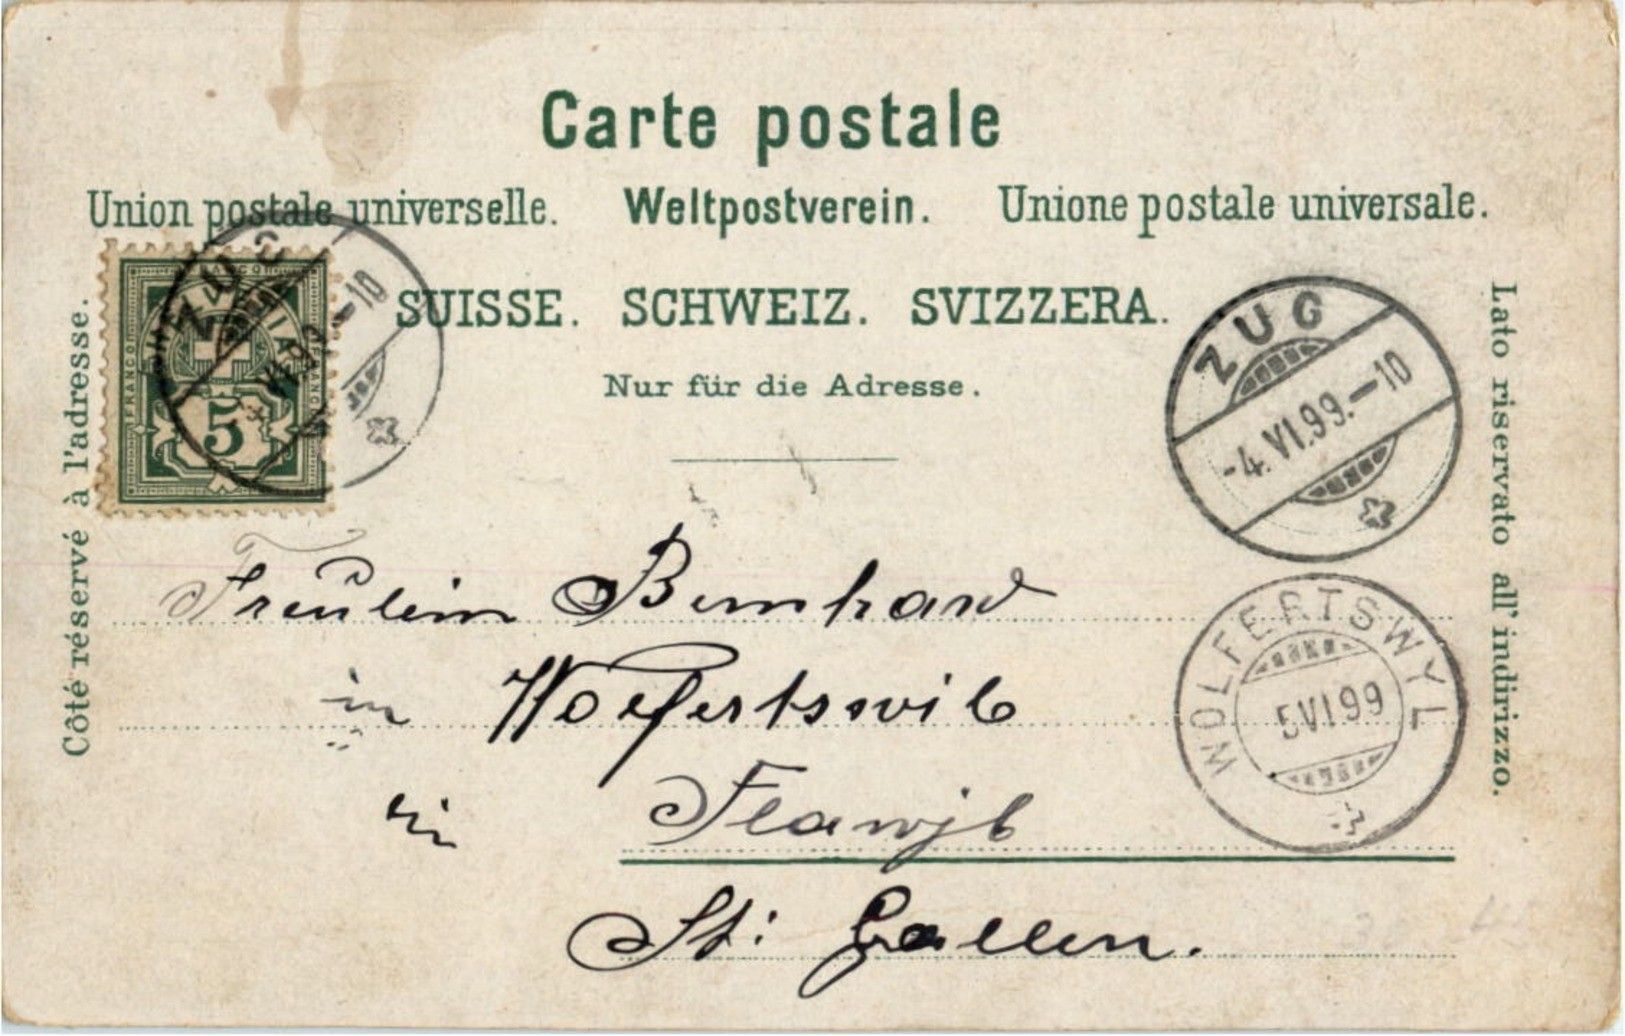 Carte postale
Union postale universelle. Weltpostverein. Unione postale universale.
SUISSE. SCHWEIZ. SVIZZERA.
Nur für die Adresse.
Côté réservé à l'adresse.
Lato riservato all' indirizzo.
FRANCO
5
ZUG
ZUG
-4.VI.99.-10
WOLFERTSWYL
5VI99
Fräulein Bernhard
in Wolfertswil
in Flawjl
St: Gallen.